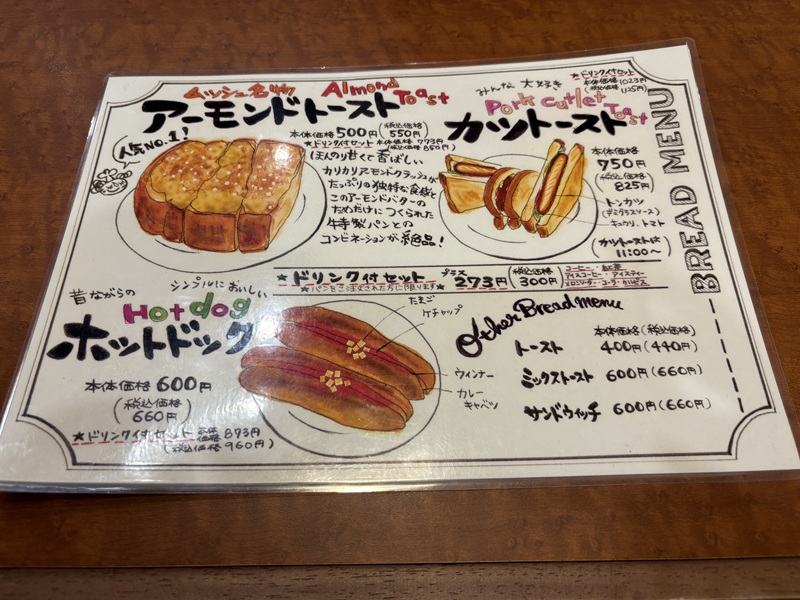 ムッシュ名物 Almond Toast
アーモンドトースト
人気No.1!
本体価格500円(税込価格 550円)
★ドリンク付セット 本体価格 773円
(税込価格 850円)
ほんのり甘くて香ばしい
カリカリアーモンドクラッシュが
たっぷりの独特な食感と
このアーモンドバターの
ためだけにつくられた
特製パンとの
コンビネーションが絶品!
みんな 大好き
★ドリンク付セット
本体価格 1023円
(税込価格 1125円)
Pork Cutlet Toast
カツトースト
本体価格
750円
(税込価格
825円)
トンカツ
(デミグラスソース)
キュウリ、トマト
(カツトーストは
11:00〜)
BREAD MENU
★ドリンク付セット プラス 273円(税込価格 300円)
★パンをご注文された方に限ります★
コーヒー・紅茶
アイスコーヒー・アイスティー
メロンソーダ・コーラ・カルピス
昔ながらの シンプルにおいしい
Hotdog
ホットドック
本体価格 600円
(税込価格
660円)
★ドリンク付セット 本体価格 873円
(税込価格 960円)
たまご
ケチャップ
ウィンナー
カレー
キャベツ
Other Bread menu
本体価格(税込価格)
トースト 400円(440円)
ミックストースト 600円(660円)
サンドウィッチ 600円(660円)